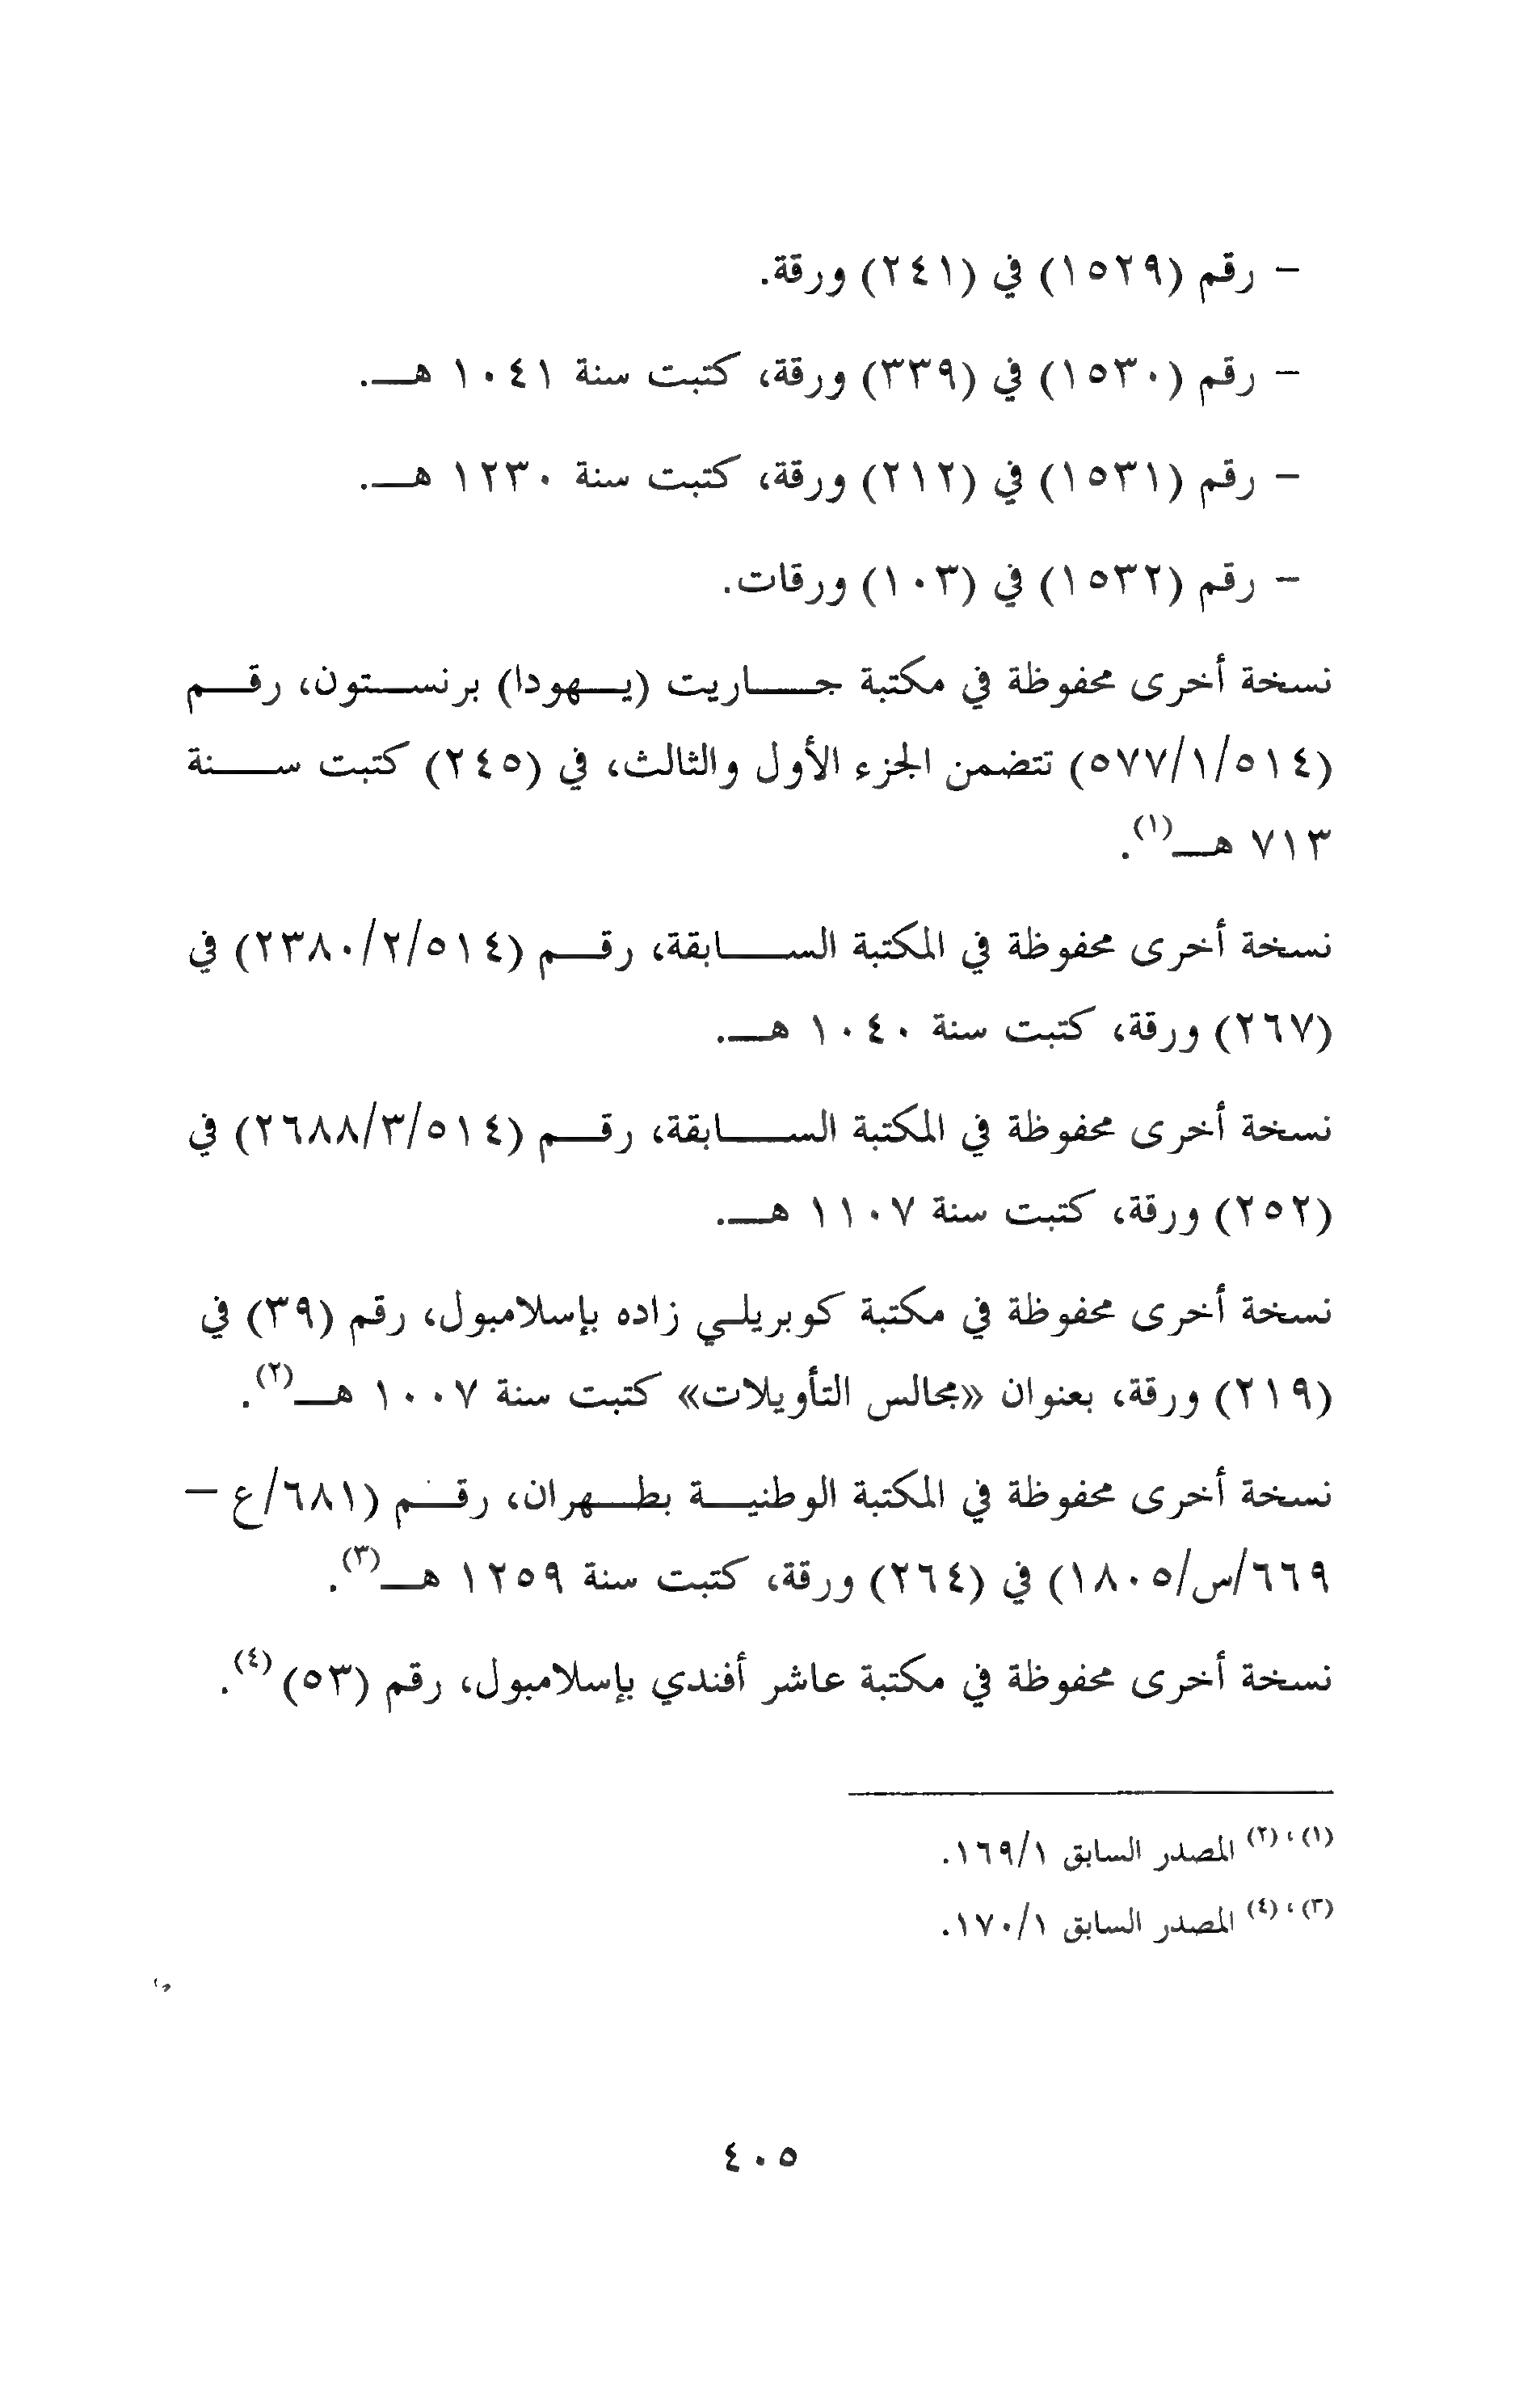 - رقم (١٥٢٩) في (٢٤١) ورقة.
- رقم (١٥٣٠) في (٣٣٩) ورقة، كتبت سنة ١٠٤١ هـ.
- رقم (١٥٣١) في (٢١٢) ورقة، كتبت سنة ١٢٣٠ هـ.
- رقم (١٥٣٢) في (١٠٣) ورقات.
نسخة أخرى محفوظة في مكتبة جاريت (يهودا) برنستون، رقم
(٥٧٧/١/٥١٤) تتضمن الجزء الأول والثالث، في (٢٤٥) كتبت سنة
٧١٣ هـ(١).
نسخة أخرى محفوظة في المكتبة السابقة، رقم (٢٣٨٠/٢/٥١٤) في
(٢٦٧) ورقة، كتبت سنة ١٠٤٠ هـ.
نسخة أخرى محفوظة في المكتبة السابقة، رقم (٢٦٨٨/٣/٥١٤) في
(٢٥٢) ورقة، كتبت سنة ١١٠٧ هـ.
نسخة أخرى محفوظة في مكتبة كوبريلي زاده بإسلامبول، رقم (٣٩) في
(٢١٩) ورقة، بعنوان «مجالس التأويلات» كتبت سنة ١٠٠٧ هـ(٢).
نسخة أخرى محفوظة في المكتبة الوطنية بطهران، رقم (٦٨١/ع -
٦٦٩/س/١٨٠٥) في (٢٦٤) ورقة، كتبت سنة ١٢٥٩ هـ(٣).
نسخة أخرى محفوظة في مكتبة عاشر أفندي بإسلامبول، رقم (٥٣)(٤).
(١)، (٢) المصدر السابق ١٦٩/١.
(٣)، (٤) المصدر السابق ١٧٠/١.
٤٠٥